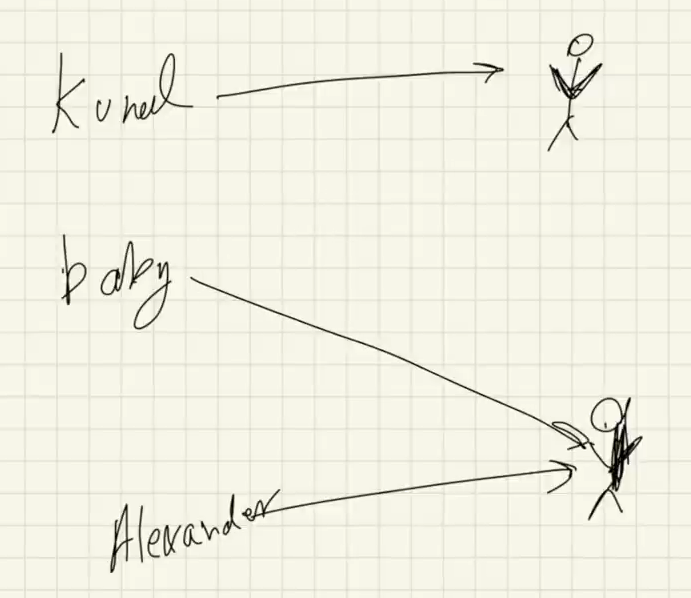 Kunal
baby
Alexander